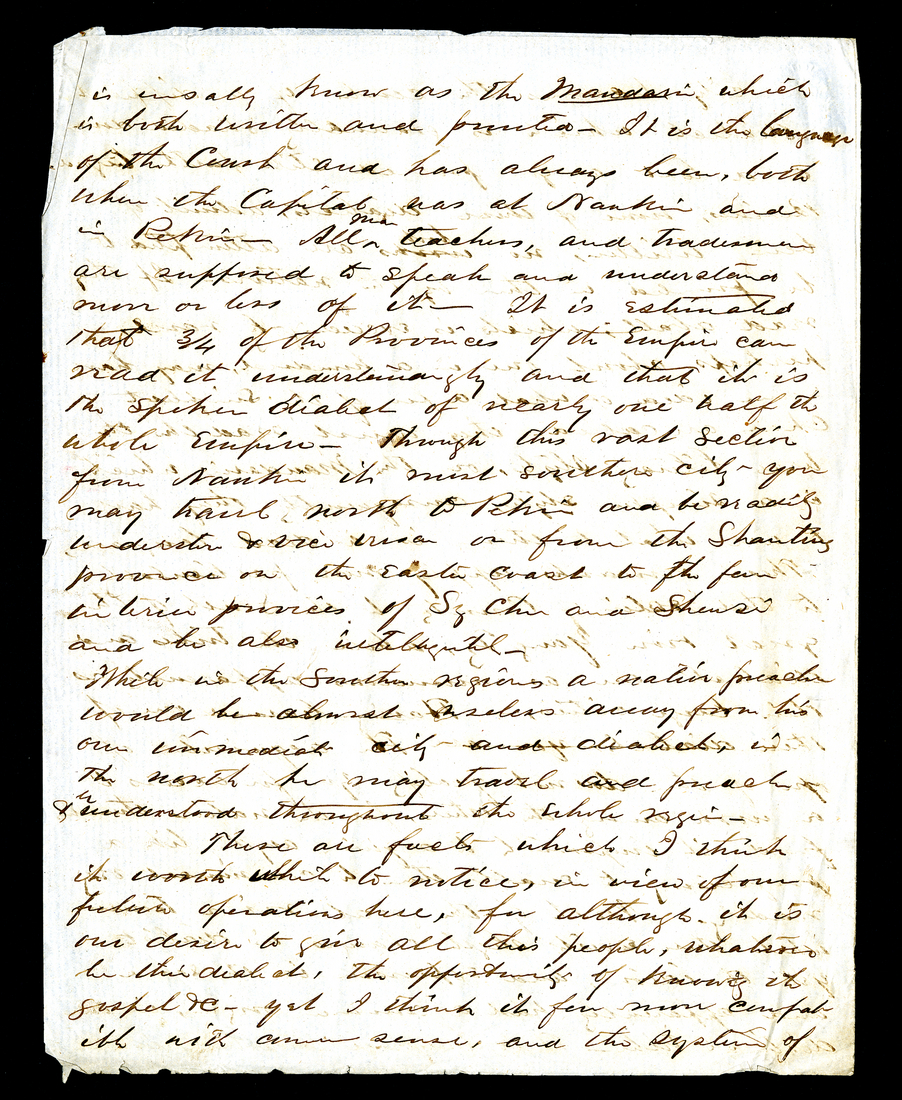 is usually know as the Mandarin which
is both written and printed - It is the language
of the Court and has always been, both
when the Capital was at Nankin and
in Pekin - All man teachers, and tradesmen
are supposed to speak and understand
more or less of it - It is estimated
that 3/4 of the Provinces of the Empire can
read it understandingly and that it is
the spoken dialect of nearly one half the
whole Empire - Through this vast section
from Nankin its most southern city - you
may travel north to Pekin and be readily
understood & vice versa or from the Shantung
province on the Eastern coast to the far
interior provinces of Sz Chu and Shensi
and be also intelligible -
While in the Southern regions a native preacher
would be almost useless away from his
own immediate city and dialect, in
the north he may travel and preach -
& be understood throughout the whole region -
These are facts which I think
it worth while to notice, in view of our
future operations here, for although it is
our desire to give all this people, whatsoever
be their dialect, the opportunity of knowing the
gospel &c - yet I think it far more compat-
ible with common sense, and the system of